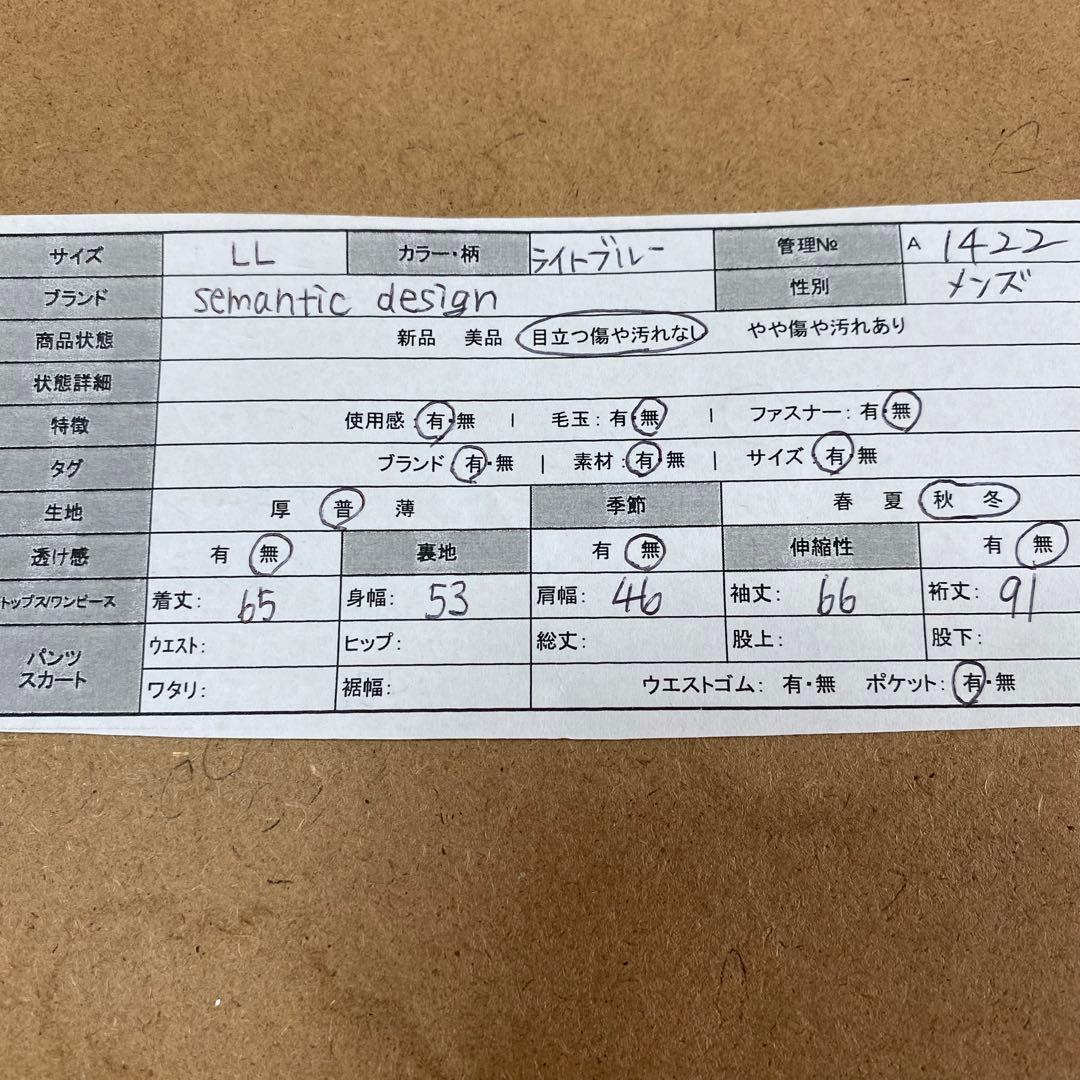 サイズ LL カラー・柄 ライトブルー 管理№ A 1422
ブランド semantic design 性別 メンズ
商品状態 新品 美品 目立つ傷や汚れなし やや傷や汚れあり
状態詳細
特徴 使用感:有・無 | 毛玉:有・無 | ファスナー:有・無
タグ ブランド:有・無 | 素材:有・無 | サイズ:有・無
生地 厚 普 薄 季節 春 夏 秋 冬
透け感 有 無 裏地 有 無 伸縮性 有 無
トップス/ワンピース 着丈: 65 身幅: 53 肩幅: 46 袖丈: 66 裄丈: 91
パンツ スカート ウエスト: ヒップ: 総丈: 股上: 股下:
ワタリ: 裾幅: ウエストゴム: 有・無 ポケット:有・無